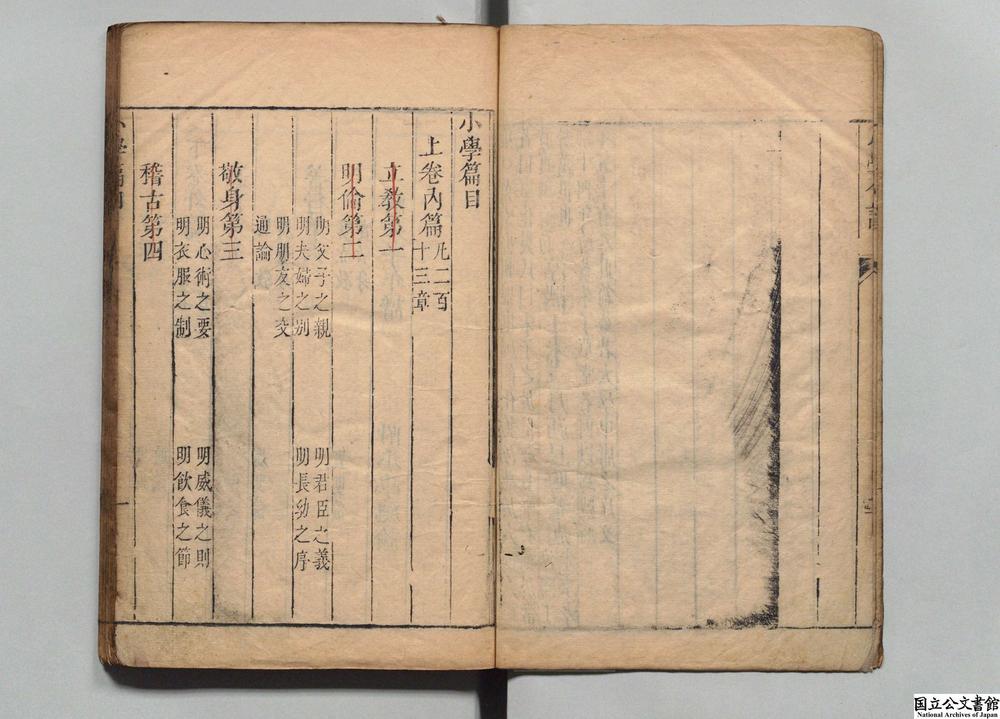 小學篇目
上卷內篇
凡二百
十三章
立教第一
明倫第二
明父子之親
明君臣之義
明夫婦之別
明長幼之序
明朋友之交
通論
敬身第三
明心術之要
明威儀之則
明衣服之制
明飲食之節
稽古第四
一
国立公文書館
National Archives of Japan